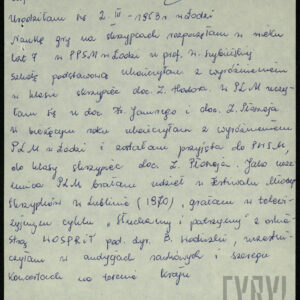 Urodziłam się 2. III - 1953 r w Łodzi
Naukę gry na skrzypcach rozpoczęłam w wieku
lat 7 w PPSM w Łodzi u prof. H.
Szkołę podstawową ukończyłam z wyróżnieniem
w klasie skrzypiec doc. Z. w PLM uczy-
łam się u doc. Fr. Jamrego i doc. Z.
W bieżącym roku ukończyłam z wyróżnieniem
PLM w Łodzi i zostałam przyjęta do PWSM,
do klasy skrzypiec doc. Z. Jako ucze-
nnica PLM brałam udział w Festiwalu Młodych
Skrzypków w Lublinie (1970), grałam w telewi-
zyjnym cyklu "Słuchamy i patrzymy" z orkie-
strą WOSPRiT pod dyr. B. Madeja, uczestni-
czyłam w audycjach radiowych i szeregu
koncertach na terenie kraju